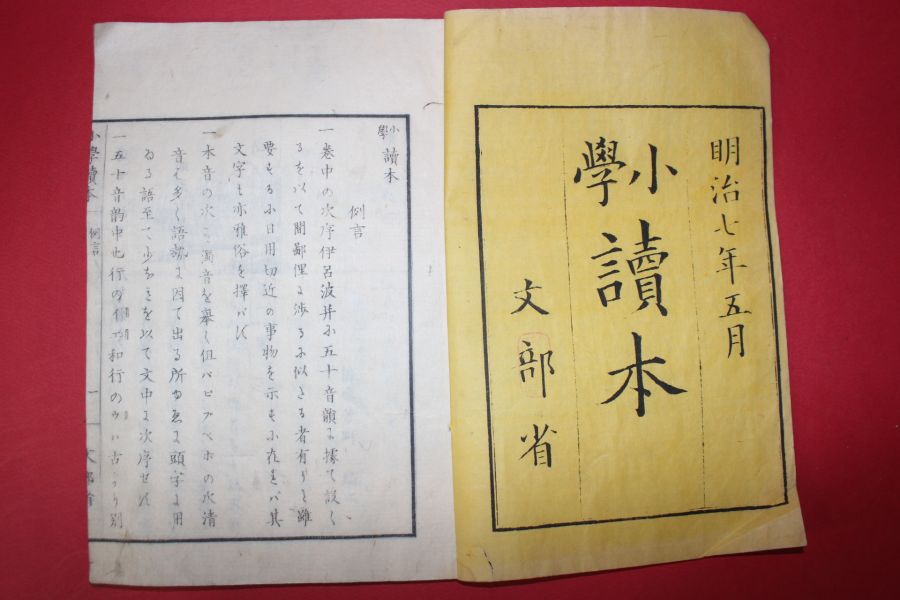 明治七年五月
小學讀本
文部省
小學讀本
例言
一卷中の次序伊呂波并ニ五十音韻に據て設く
るを以て間鄙俚に渉るに似たる者有りと雖
要するに日用切近の事物を示すに在れバ其
文字も亦雅俗を擇バず
一本音の次に濁音を擧く但バビブベボの次清
音ハ多く語勢に因て出る所ゆゑに頭字に用
ゐる語至て少なきを以て文中に次序せず
一五十音韻中也行のイヱ和行のウハ古より別
小學讀本
例言
一
文部省